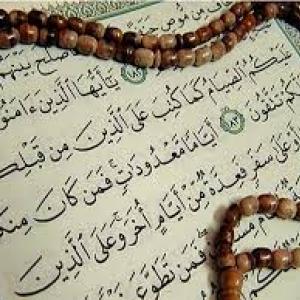 ف من موص جنفا
صلح بينهم
١٨٢ يَٰٓأَيُّهَا ٱلَّذِينَ ءَامَنُوا
عَلَيْكُمُ ٱلصِّيَامُ كَمَا كُتِبَ عَلَى ٱلَّذِينَ مِن قَبْلِكُ
كُمْ تَتَّقُونَ ١٨٣ أَيَّامًا مَّعْدُودَٰتٍ فَمَن كَانَ مِنكُ
أَوْ عَلَىٰ سَفَرٍ فَعِدَّةٌ مِّنْ أَيَّامٍ أُخَرَ وَعَلَى ٱلَّذِينَ
فَمَن تَطَوَّعَ